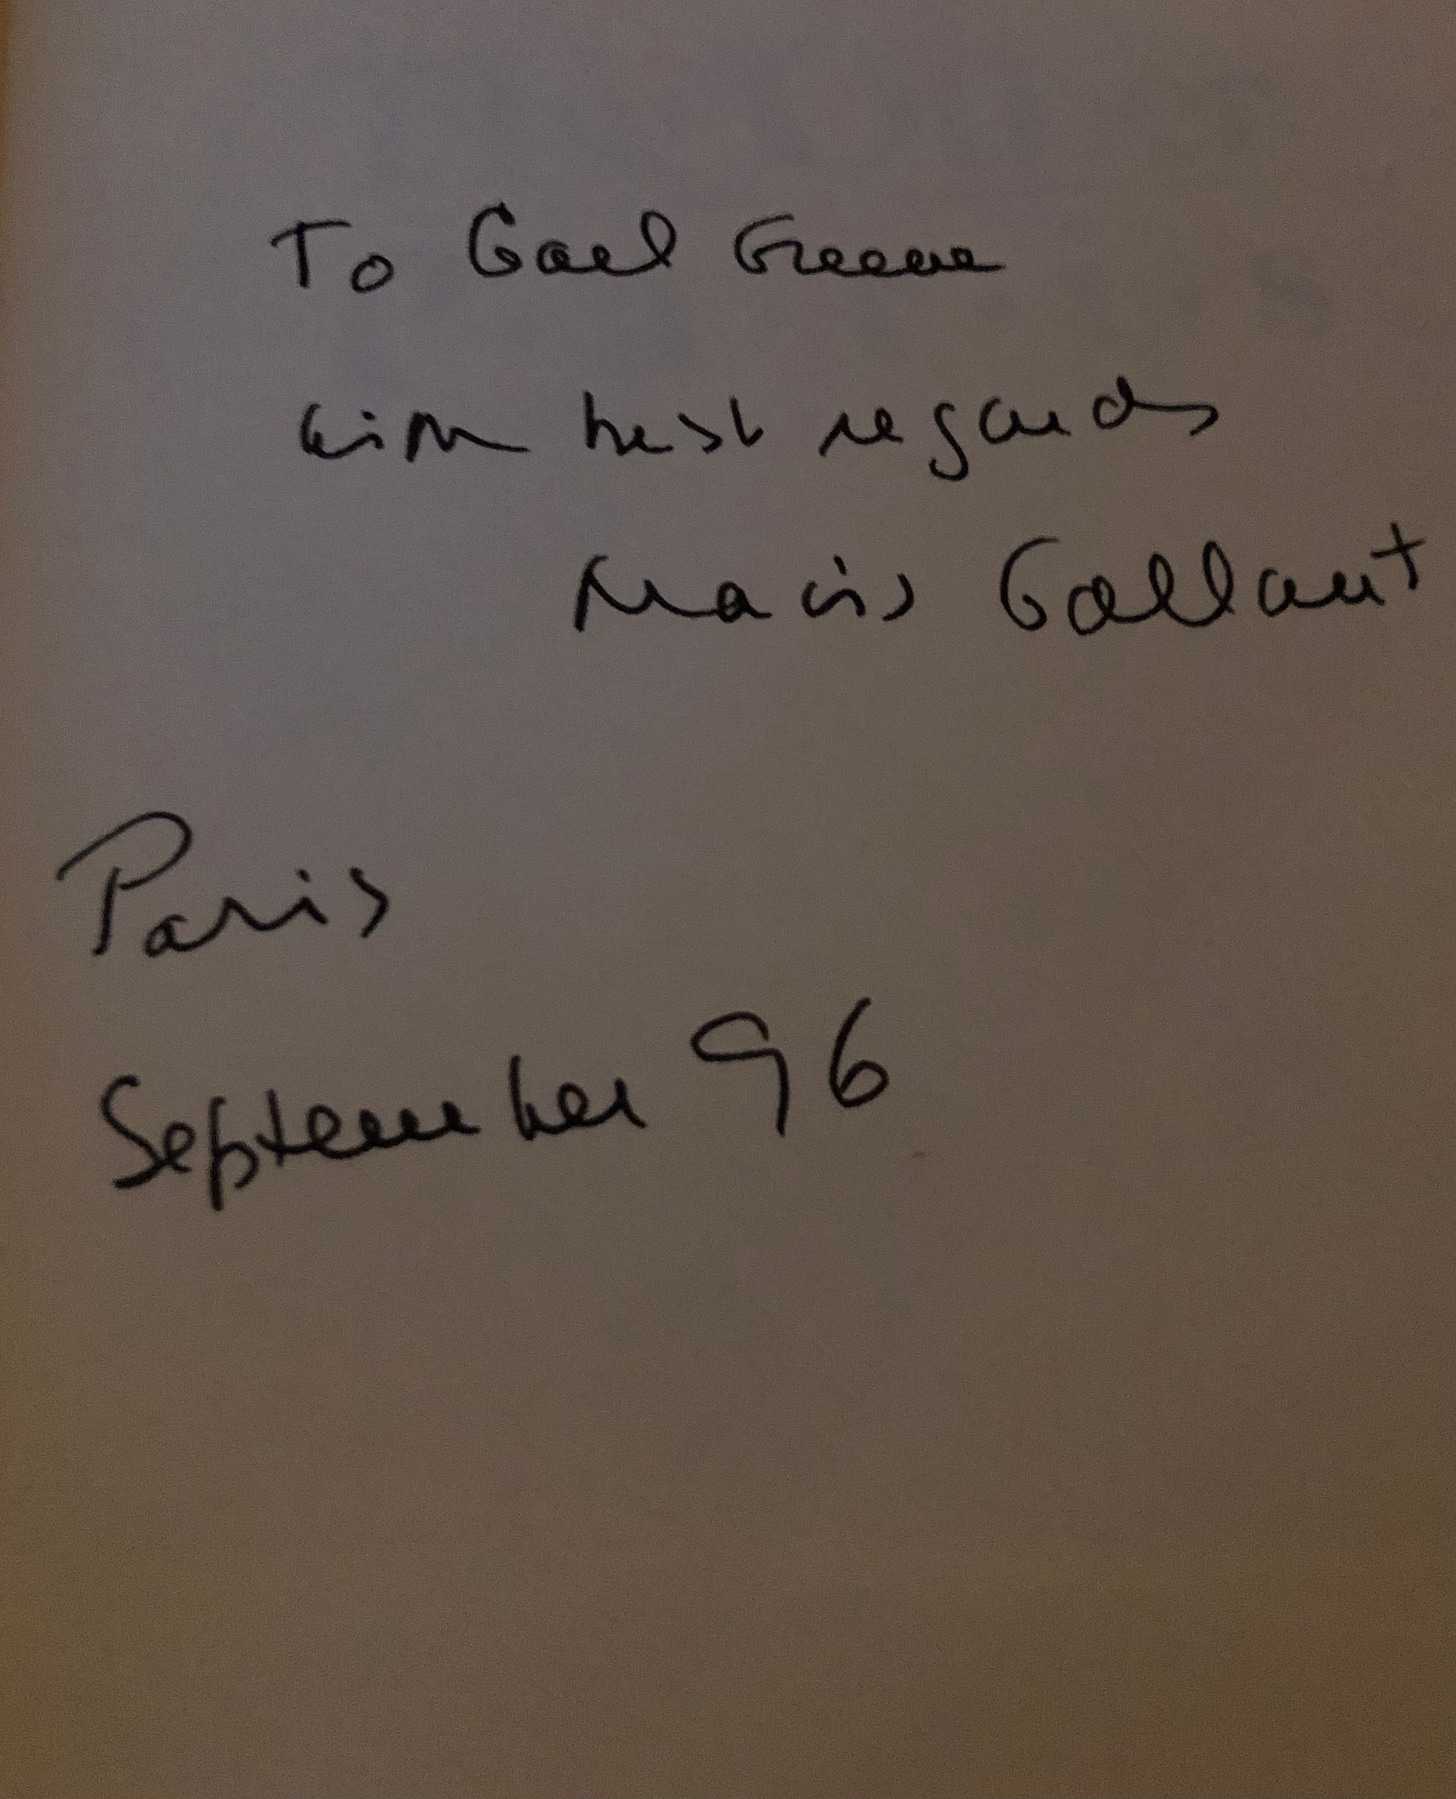 To Gael Greene
with best regards
Mavis Gallant
Paris
September 96